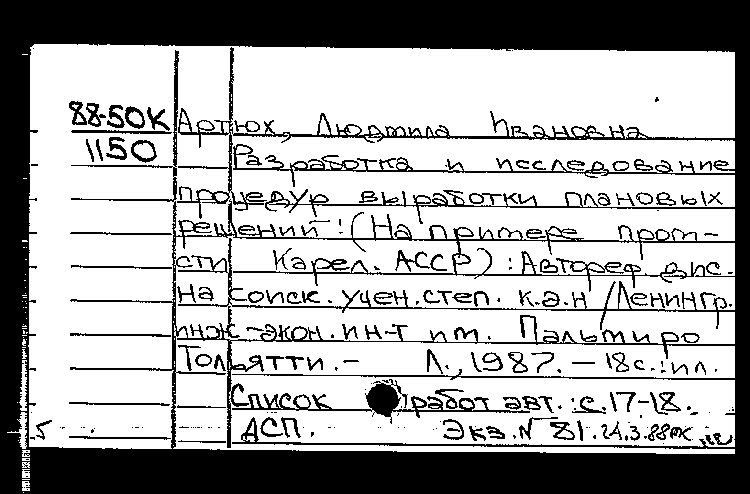 88-50К Артюх, Людмила Ивановна
1150 Разработка и исследование
процедур выработки плановых
решений: (На примере пром-
сти Карел. АССР) : Автореф. дис.
на соиск. учен. степ. к.э.н / Ленингр.
инж-экон. ин-т им. Пальмиро
Тольятти. - Л., 1987. - 18 с. : ил.
Список работ авт. : с. 17-18.
5 ДСП. Экз. N 81. 24.3.88